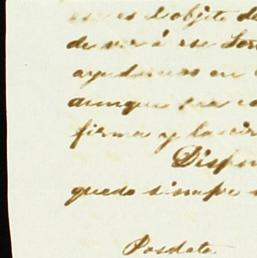 ese es el objeto de
de ver á ese Sor
ayudarnos en
aunque sea co
firma y la cir
Dispen
quedo siempre
Posdata